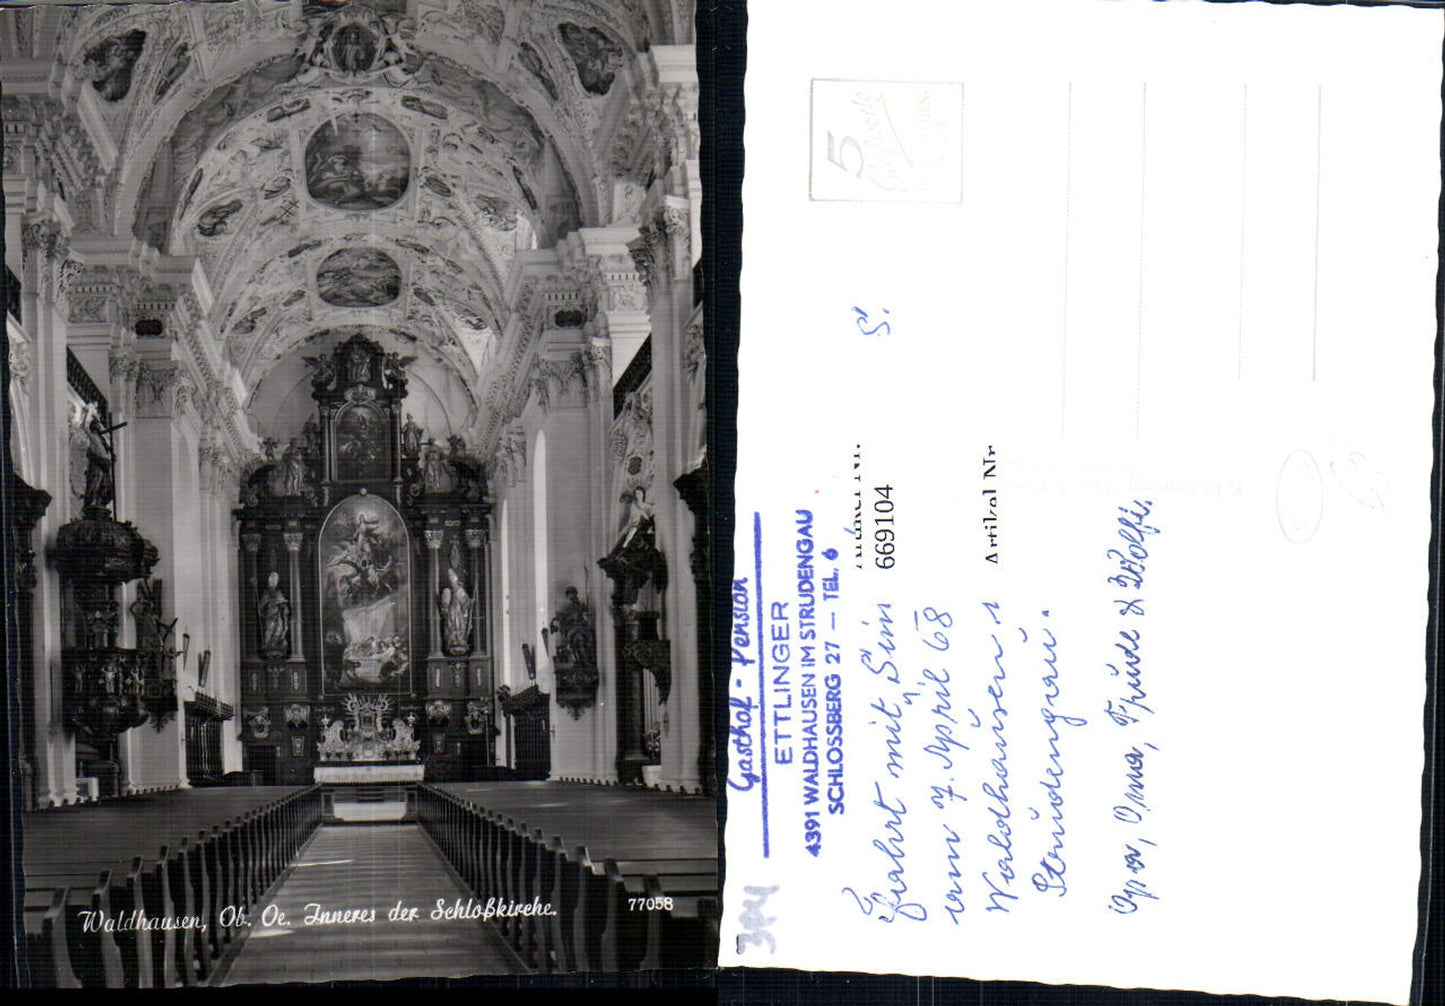 Waldhausen, Ob. Oe. Inneres der Schloßkirche.
77058
Gasthof - Pension
ETTLINGER
4391 WALDHAUSEN IM STRUDENGAU
SCHLOSSBERG 27 — TEL. 6
669104
Artikel Nr
Fahrt mit
am 7. April 68
Waldhausen
Strudengau.
Opa, Oma, Trude & Wolfi.
S.
5
384